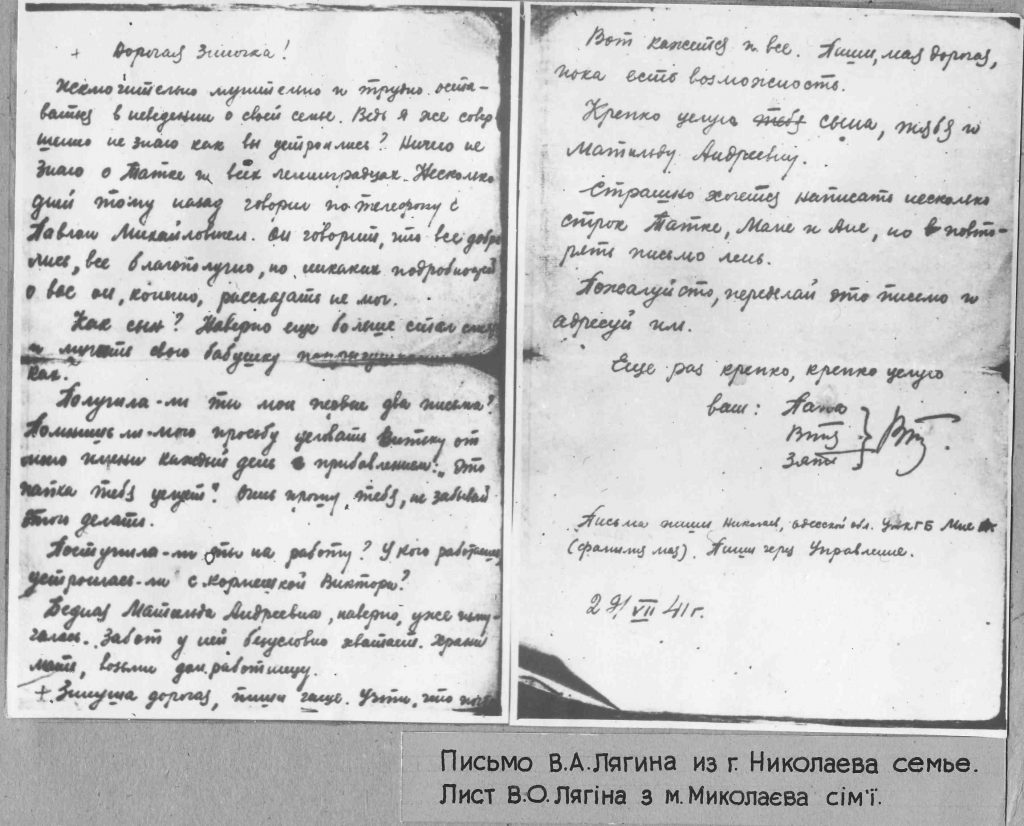 + Дорогая Зиночка!
Исключительно мучительно и трудно оста-
ваться в неведении о своей семье. Ведь я же совер
шенно не знаю как вы устроились? Ничего не
знаю о Татке и всех ленинградцах. Несколько
дней тому назад говорил по телефону с
Павлом Михайловичем. Он говорит, что все добра
лись, все благополучно, но никаких подробностей
о вас он, конечно, рассказать не мог.
Как сын? Наверно еще больше стал
и мучает свою бабушку
как.
Получила-ли ты мои первые два письма?
Помнишь ли-мою просьбу целовать Витьку от
моего имени каждый день с прибавлением: „это
папка тебя целует"? Очень прошу тебя, не забывай
этого делать.
Поступила-ли ты на работу? У кого работаешь,
устроилась-ли с кормежкой Виктора?
Бедная Матильда Андреевна, наверно, уже
Забот у ней безусловно хватает. Храни
мать, возьми дом. работницу.
+ Зинуша дорогая, пиши чаще. Учти, что
Вот кажется и все. Пиши, моя дорогая,
пока есть возможность.
Крепко целую тебя сына, тебя и
Матильду Андреевну.
Страшно хочется написать несколько
строк Татке, Мане и Ане, но повто-
рять письмо лень.
Пожалуйста, переделай это письмо и
адресуй им.
Еще раз крепко, крепко целую
ваш: Папа
Витя
Зять
Письма пиши Николаев, одесской обл. УНКГБ Мне
(фамилия моя). Пиши через Управление.
29/VII 41 г.
Письмо В.А.Лягина из г. Николаева семье.
Лист В.О.Лягіна з м.Миколаєва сім'ї.